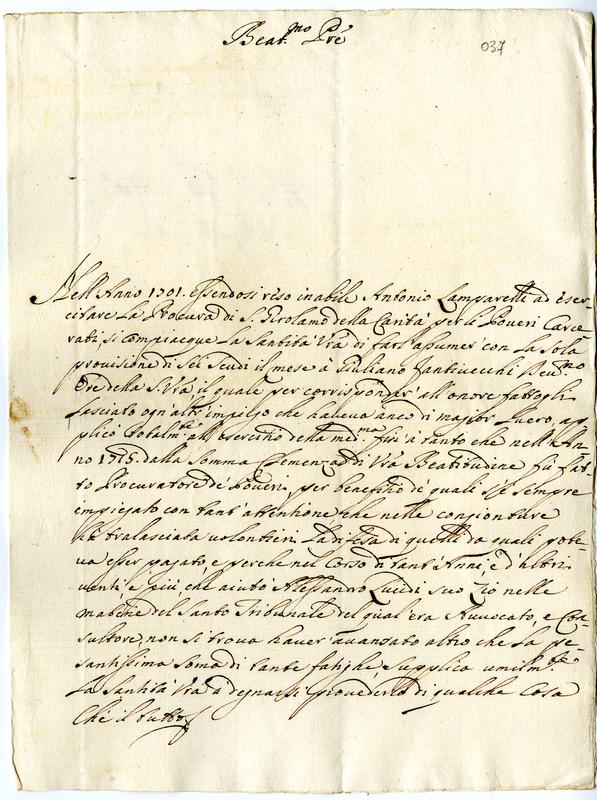 Beat.mo Pre
037
Nell'Anno 1701. essendosi reso inabile Antonio Lamparelli ad eser-
citare la Procura di S. Girolamo della Carità per li Poveri Carce-
rati, si compiacque la Santità Vra di farl' assumer con la sola
provisione di sei scudi il mese à Giuliano
Ore della S. Vra il quale per corrisponder' all'onore fattogli
lasciato ogn'altr' impiego che haveva anco di maggior lucro, ap-
plicò totalm.te all'esercitio della med.ma fin' à tanto che nell'An-
no 1715. dalla somma Clemenza di Vra Beatitudine fù fat-
to Procuratore de Poveri, per benefitio de quali s'è sempre
impiegato con tant'attentione, che nelle congionture
hà tralasciata volontieri la difesa di quelli da quali pote-
va esser pagato, e perche nel Corso di tant'Anni, e d'altri
venti, e più, che aiutò Alessandro suo Zio nelle
materie del Santo Tribunale del qual'era Avvocato, e Con-
sultore, non si trova haver avanzato altro che la pe-
santissima soma di tante fatighe, supplica umilm.te
la Santità Vra a degnarsi provederlo di qualche cosa
Che il tutto